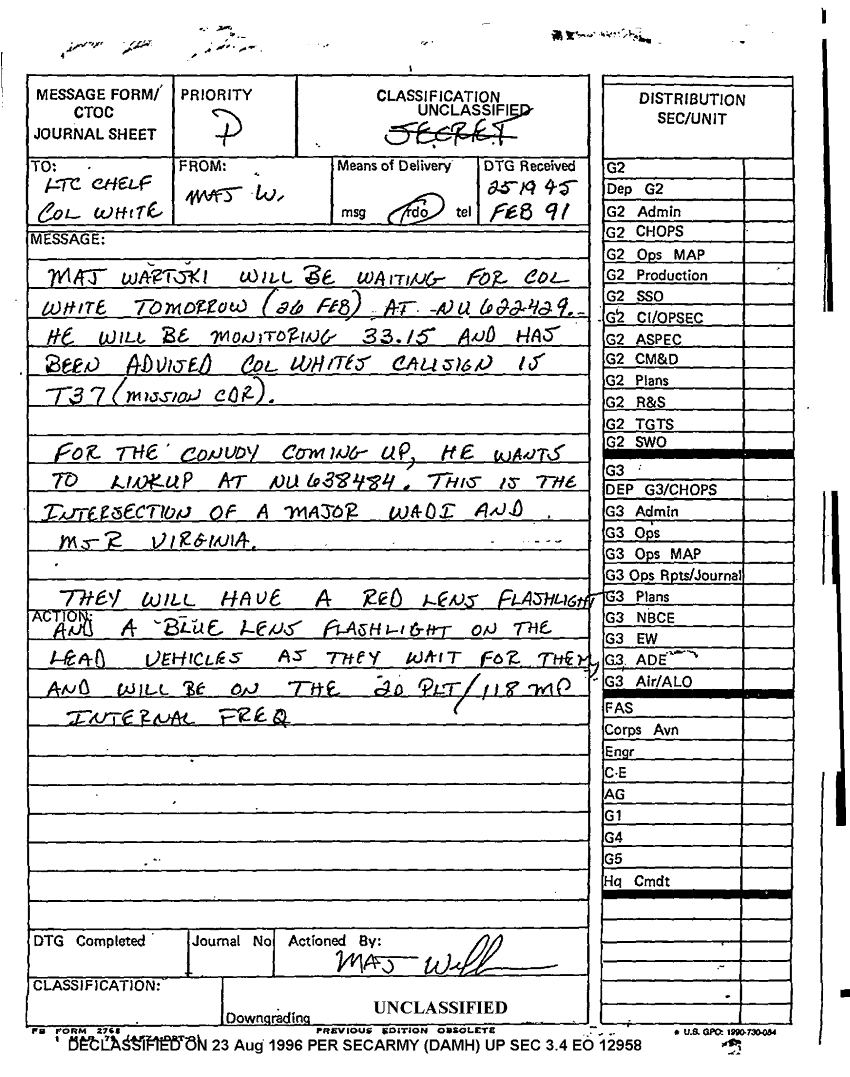 MESSAGE FORM/
CTOC
JOURNAL SHEET
PRIORITY
P
CLASSIFICATION
UNCLASSIFIED
SECRET
DISTRIBUTION
SEC/UNIT
TO:
LTC CHELF
COL WHITE
FROM:
MAJ W.
Means of Delivery
msg rdo tel
DTG Received
251945
FEB 91
MESSAGE:
MAJ WARTSKI WILL BE WAITING FOR COL
WHITE TOMORROW (26 FEB) AT NU 622429.
HE WILL BE MONITORING 33.15 AND HAS
BEEN ADVISED COL WHITES CALLSIGN IS
T37 (MISSION CDR).
FOR THE CONUDY COMING UP, HE WANTS
TO LINKUP AT NU 638484. THIS IS THE
INTERSECTION OF A MAJOR WADI AND
MSR VIRGINIA.
THEY WILL HAVE A RED LENS FLASHLIGHT
ACTION:
AND A BLUE LENS FLASHLIGHT ON THE
LEAD VEHICLES AS THEY WAIT FOR THEM,
AND WILL BE ON THE 2D PLT/118 MP
INTERNAL FREQ
DTG Completed
Journal No
Actioned By:
MAJ
CLASSIFICATION:
Downgrading
UNCLASSIFIED
G2
Dep G2
G2 Admin
G2 CHOPS
G2 Ops MAP
G2 Production
G2 SSO
G2 CI/OPSEC
G2 ASPEC
G2 CM&D
G2 Plans
G2 R&S
G2 TGTS
G2 SWO
G3
DEP G3/CHOPS
G3 Admin
G3 Ops
G3 Ops MAP
G3 Ops Rpts/Journal
G3 Plans
G3 NBCE
G3 EW
G3 ADE
G3 Air/ALO
FAS
Corps Avn
Engr
C-E
AG
G1
G4
G5
Hq Cmdt
FB FORM 2768
PREVIOUS EDITION OBSOLETE
* U.S. GPO: 1990-730-084
DECLASSIFIED ON 23 Aug 1996 PER SECARMY (DAMH) UP SEC 3.4 EO 12958